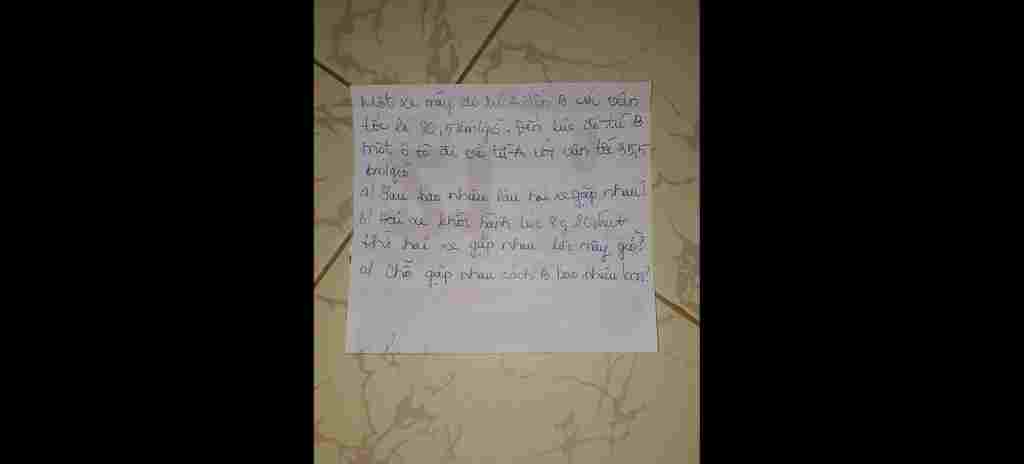 Một xe máy đi từ A đến B với vận
tốc là 32,5 km/giờ. Đến lúc đó từ B
một ô tô đi về A với vận tốc 35,5
km/giờ
a) Sau bao nhiêu lâu hai xe gặp nhau?
b) Hai xe khởi hành lúc phút
thì hai xe gặp nhau lúc mấy giờ?
c) Chỗ gặp nhau cách B bao nhiêu km?